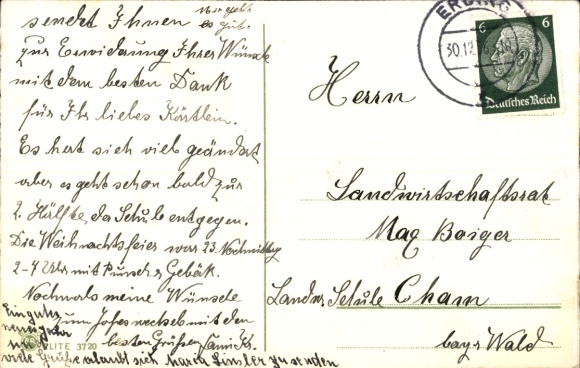 sendet Ihnen
Mir geht
es gut.
zur Erwiderung Ihrer Wünsche
mit dem besten Dank
für Ihr liebes Kärtlein.
Es hat sich viel geändert
aber es geht schon bald zur
2. Hälfte, da Schule entgegen.
Die Weihnachtsfeier war 23. Nachmittag
2-4 Uhr mit Punsch & Gebäk.
Nochmals meine Wünsche
zum Jahreswechsel mit den
besten Grüßen
Ein gutes
neues Jahr
und
viele Grüße erlaubt sich Maria zu senden
ELITE 3720
ERDING
30.12.36
6 6
Deutsches Reich
Herrn
Landwirtschaftsrat
Max Boiger
Landw. Schule Cham
bayr. Wald